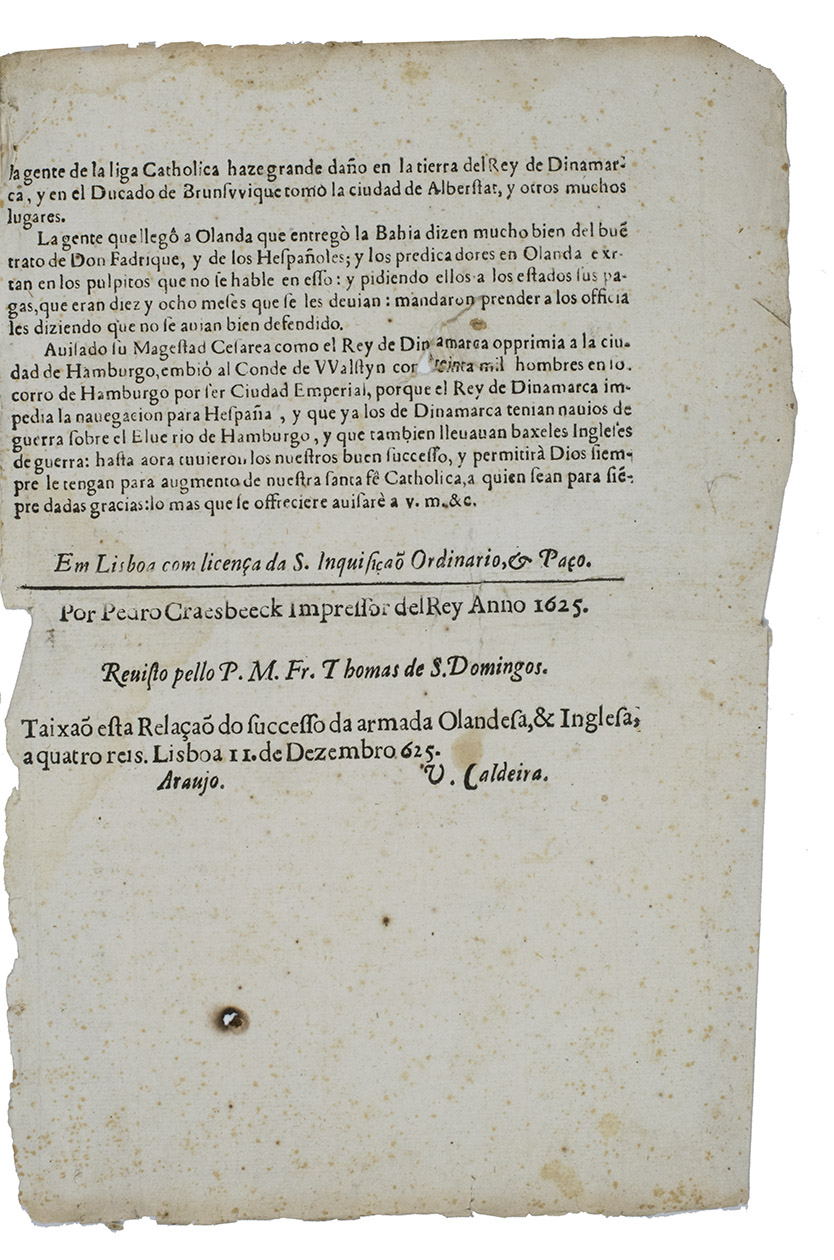 la gente de la liga Catholica haze grande daño en la tierra del Rey de Dinamar-
ca, y en el Ducado de Brunſvvique tomò la ciudad de Alberſtat, y otros muchos
lugares.
La gente que llegô a Olanda que entregò la Bahia dizen mucho bien del buē
trato de Don Fadrique, y de los Heſpañoles; y los predicadores en Olanda exr-
tan en los pulpitos que no ſe hable en eſſo: y pidiendo ellos a los eſtados ſus pa-
gas, que eran diez y ocho meſes que ſe les deuian: mandaron prender a los officia
les diziendo que no ſe auian bien defendido.
Auiſado ſu Mageſtad Ceſarea como el Rey de Dinamarca opprimia a la ciu-
dad de Hamburgo, embiò al Conde de VValſtyn con mil hombres en ſo.
corro de Hamburgo por ſer Ciudad Emperial, porque el Rey de Dinamarca im-
pedia la nauegacion para Heſpaña, y que ya los de Dinamarca tenian nauios de
guerra ſobre el Elue rio de Hamburgo, y que tambien lleuauan baxeles Ingleſes
de guerra: haſta aora tuuieron los nueſtros buen ſucceſſo, y permitirà Dios ſiem-
pre le tengan para augmento de nueſtra ſanta fê Catholica, a quien ſean para ſiē-
pre dadas gracias: lo mas que ſe offreciere auiſarè a v. m. &c.
Em Lisboa com licença da S. Inquiſiçaõ Ordinario, & Paço.
Por Pedro Craesbeeck Impreſſor del Rey Anno 1625.
Reuiſto pello P. M. Fr. Thomas de S. Domingos.
Taixaõ eſta Relaçaõ do ſucceſſo da armada Olandeſa, & Ingleſa,
a quatro reis. Lisboa 11. de Dezembro 625.
Araujo. V. Caldeira.